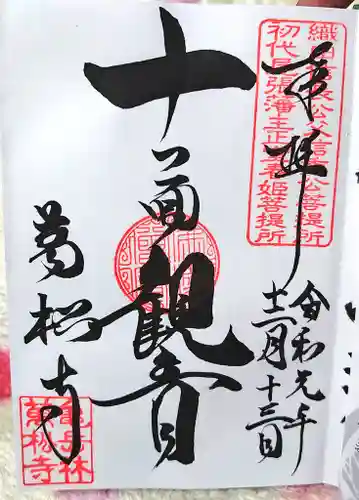 奉拝
織田信長公父信秀公菩提所
初代尾張藩主正室春姫菩提所
令和元年
十二月十三日
十一面観音
萬松寺
亀岳林
萬松寺